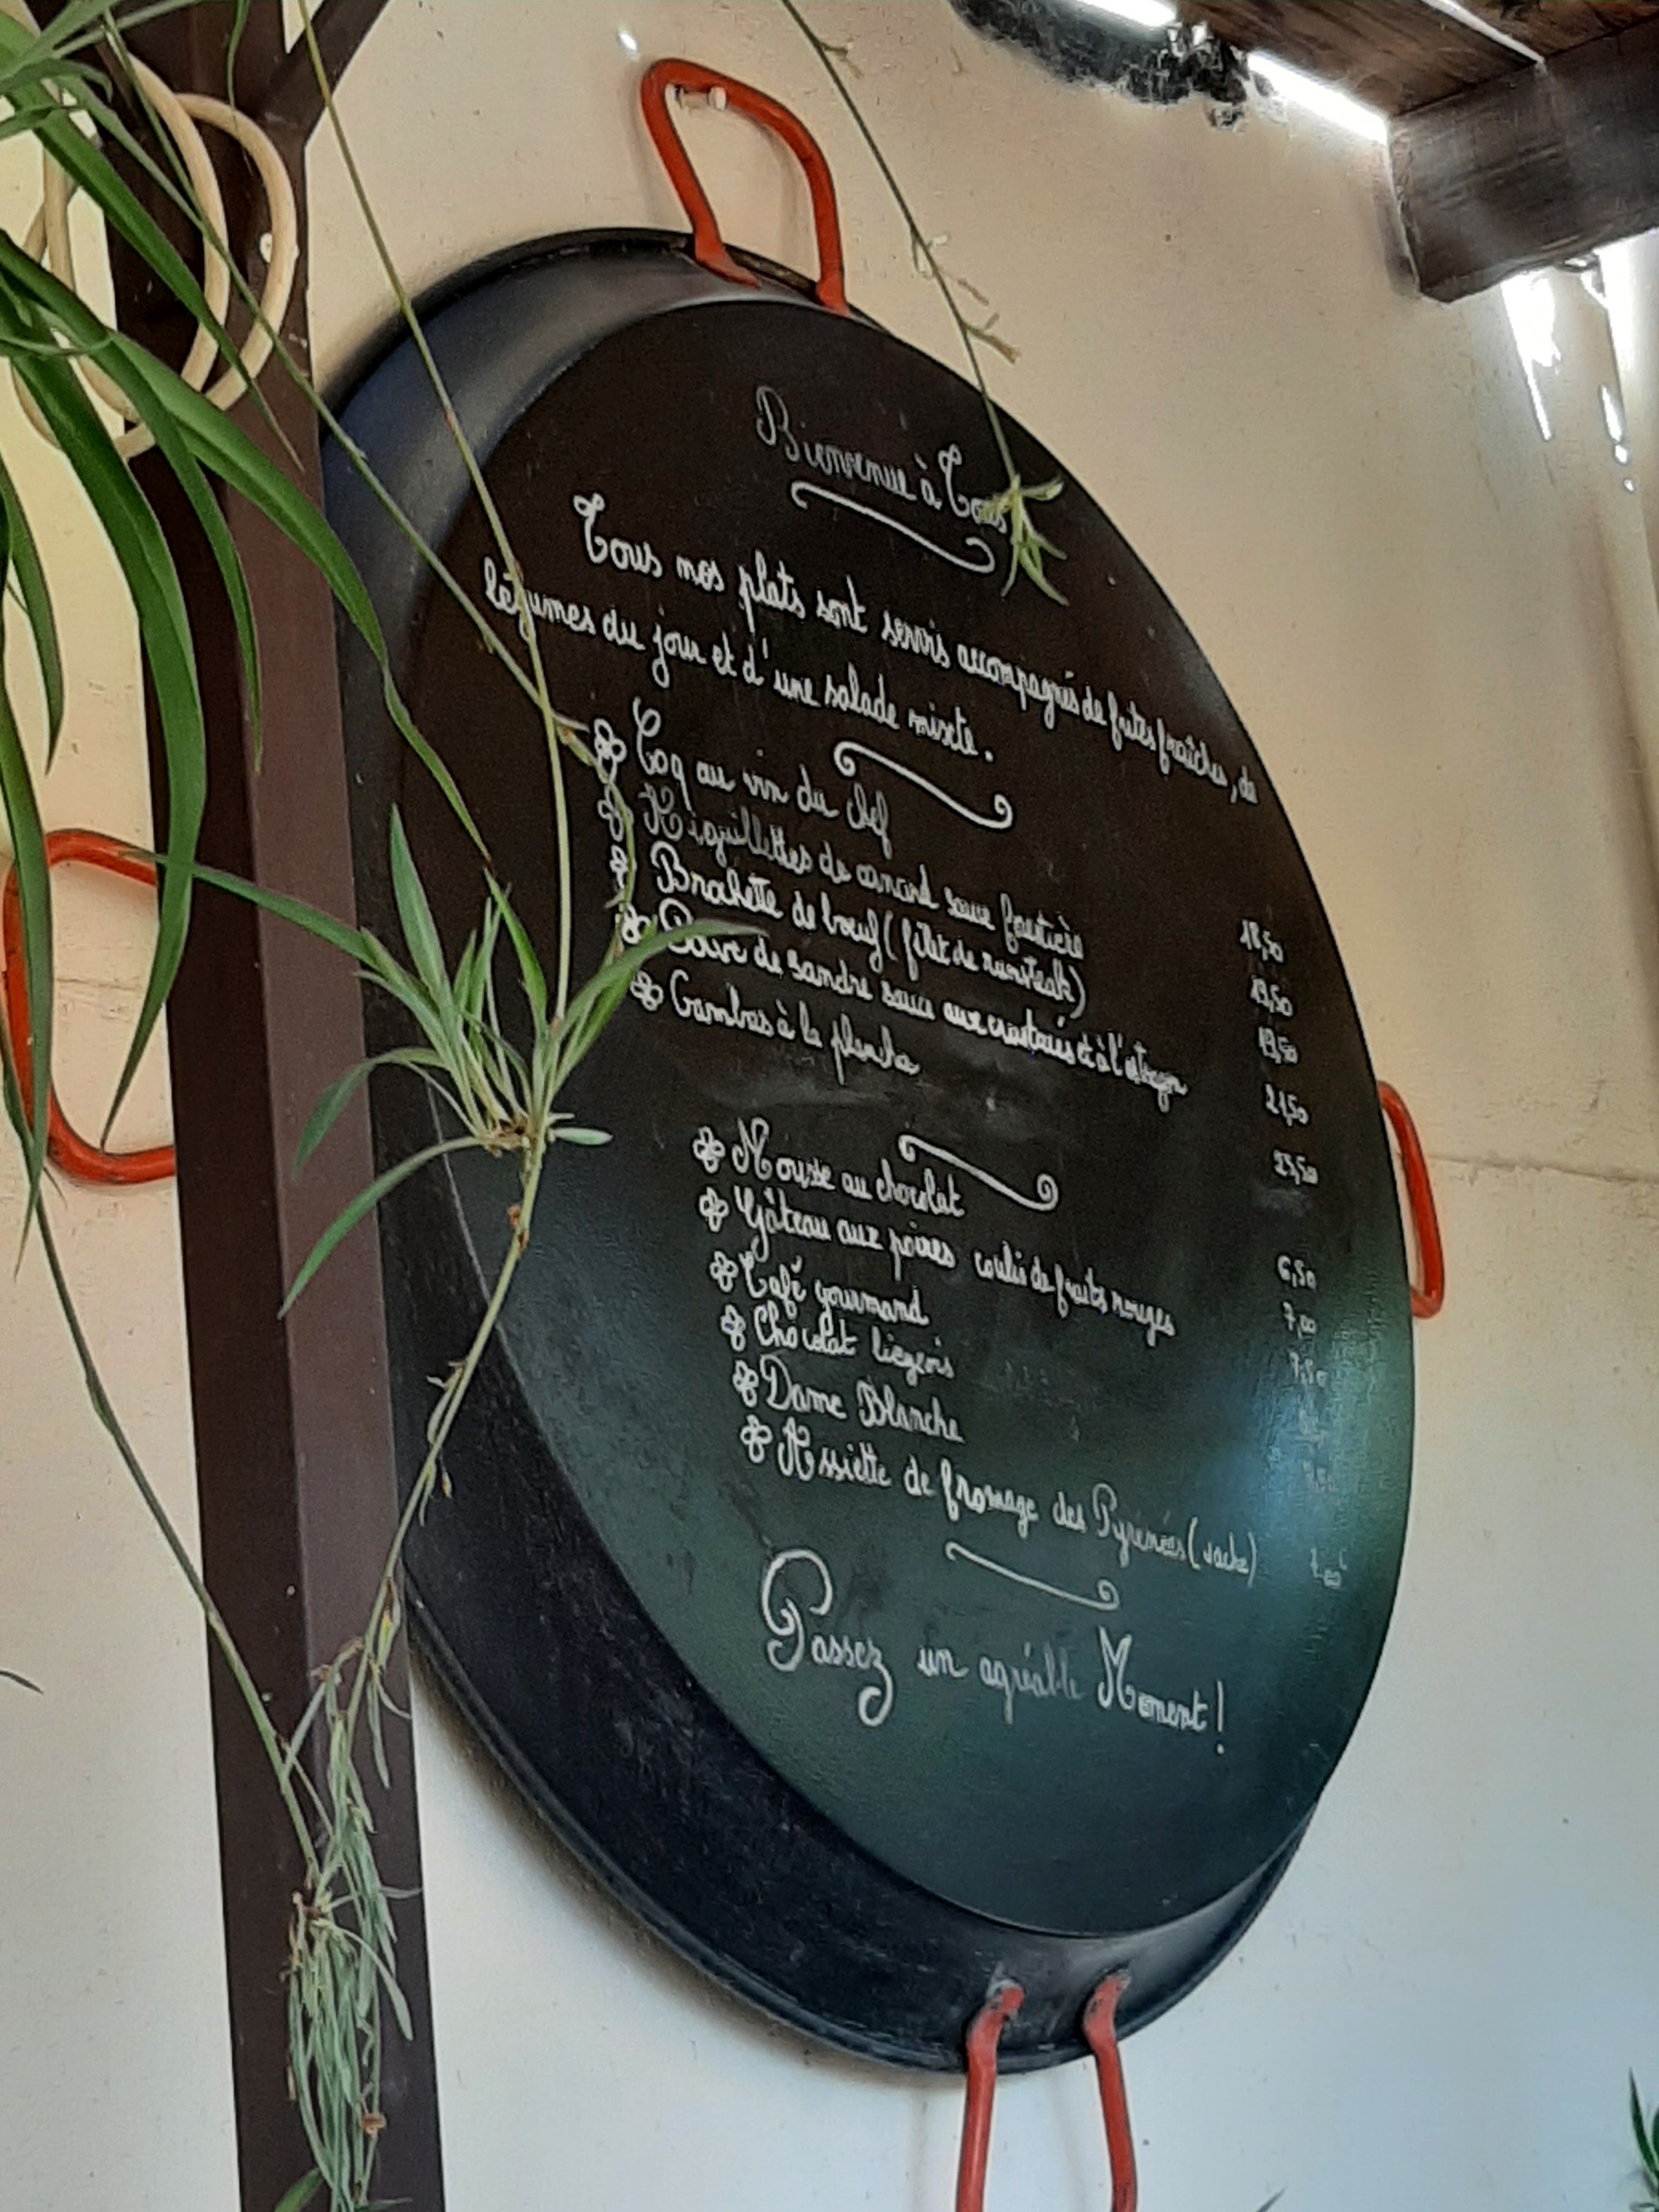 Bienvenue à Tous
Tous nos plats sont servis accompagnés de frites fraîches, de
légumes du jour et d'une salade mixte.
Coq au vin du chef 18,50
Aiguillettes de canard sauce forestière 19,50
Brochette de bœuf (filet de rumsteak) 19,50
Pavé de sandre sauce aux crustacés et à l'estragon 21,50
Gambas à la plancha 23,50
Mousse au chocolat 6,50
Gâteau aux poires coulis de fruits rouges 7,00
Café gourmand
Chocolat liégeois
Dame Blanche
Assiette de fromage des Pyrénées (vache)
Passez un agréable Moment!